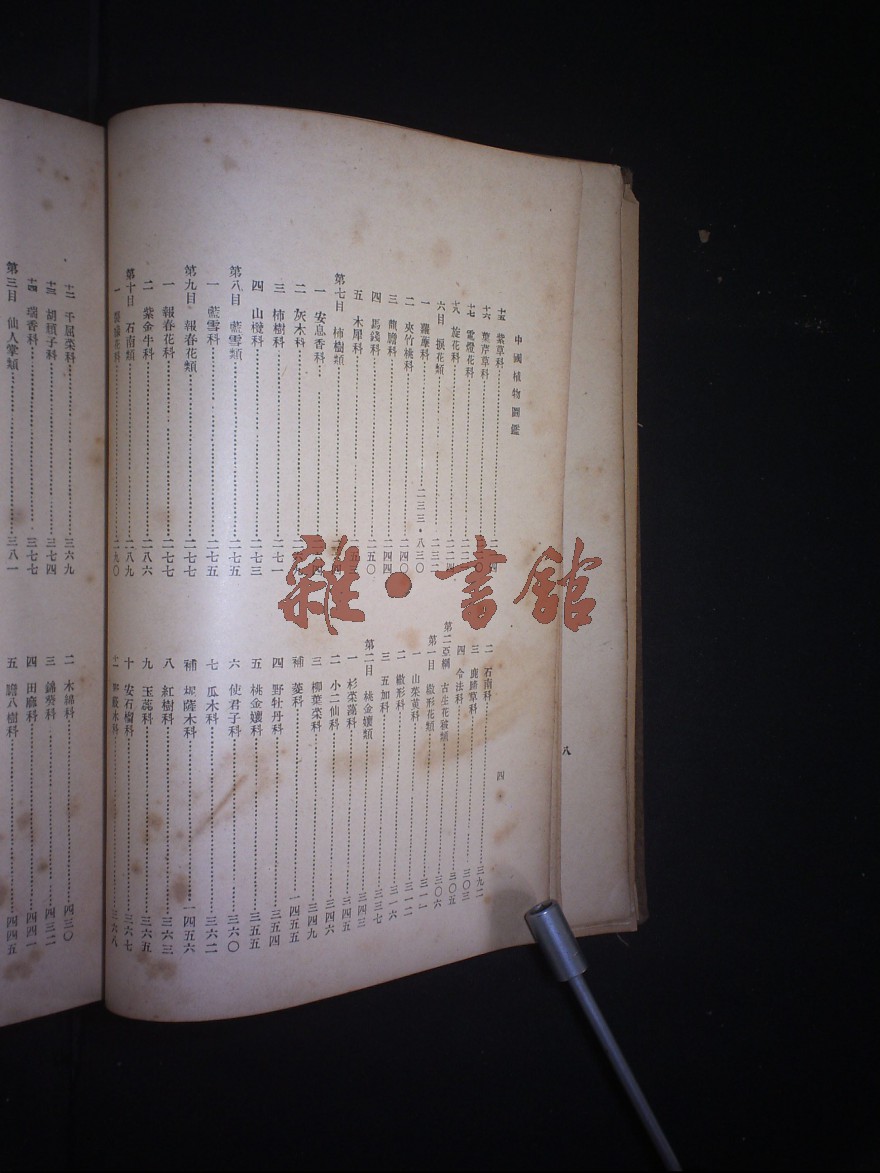 中國植物圖鑑
十五 紫草科
十六 葉芹草科
十七 電燈花科
十八 旋花科
六目 捩花類 二三二
一 蘿藦科 二三三・八三〇
二 夾竹桃科 二四〇
三 龍膽科 二四四
四 馬錢科 二五〇
五 木犀科
第七目 柿樹類
一 安息香科
二 灰木科
三 柿樹科 二七一
四 山欖科 二七三
第八目 藍雪類 二七五
一 藍雪科 二七五
第九目 報春花類 二七七
一 報春花科 二七七
二 紫金牛科 二八六
第十目 石南類 二八九
一 花科 二九〇
二 石南科 三九二
三 鹿蹄草科 三〇三
四 令法科 三〇五
第二亞綱 古生花被類
第一目 繖形花類 三〇六
一 山茱萸科 三一一
二 繖形科 三一二
三 五加科 三一六
第二目 桃金孃類 三三七
一 杉菜藻科 三四三
二 小二仙科 三四五
三 柳葉菜科 三四六
補 菱科 三四九
四 野牡丹科 一四五五
五 桃金孃科 三五四
六 使君子科 三五五
七 瓜木科 三六〇
補 薩木科 三六二
八 紅樹科 一四五六
九 玉蕊科 三六三
十 安石榴科 三六五
十一 木科 三六七
三六八
四
八
十二 千屈菜科 三六九
十三 胡頹子科 三七四
十四 瑞香科 三七七
第三目 仙人掌類 三八一
二 木綿科 四三〇
三 錦葵科 四三二
四 田麻科 四四一
五 膽八樹科 四四五
雜・書館